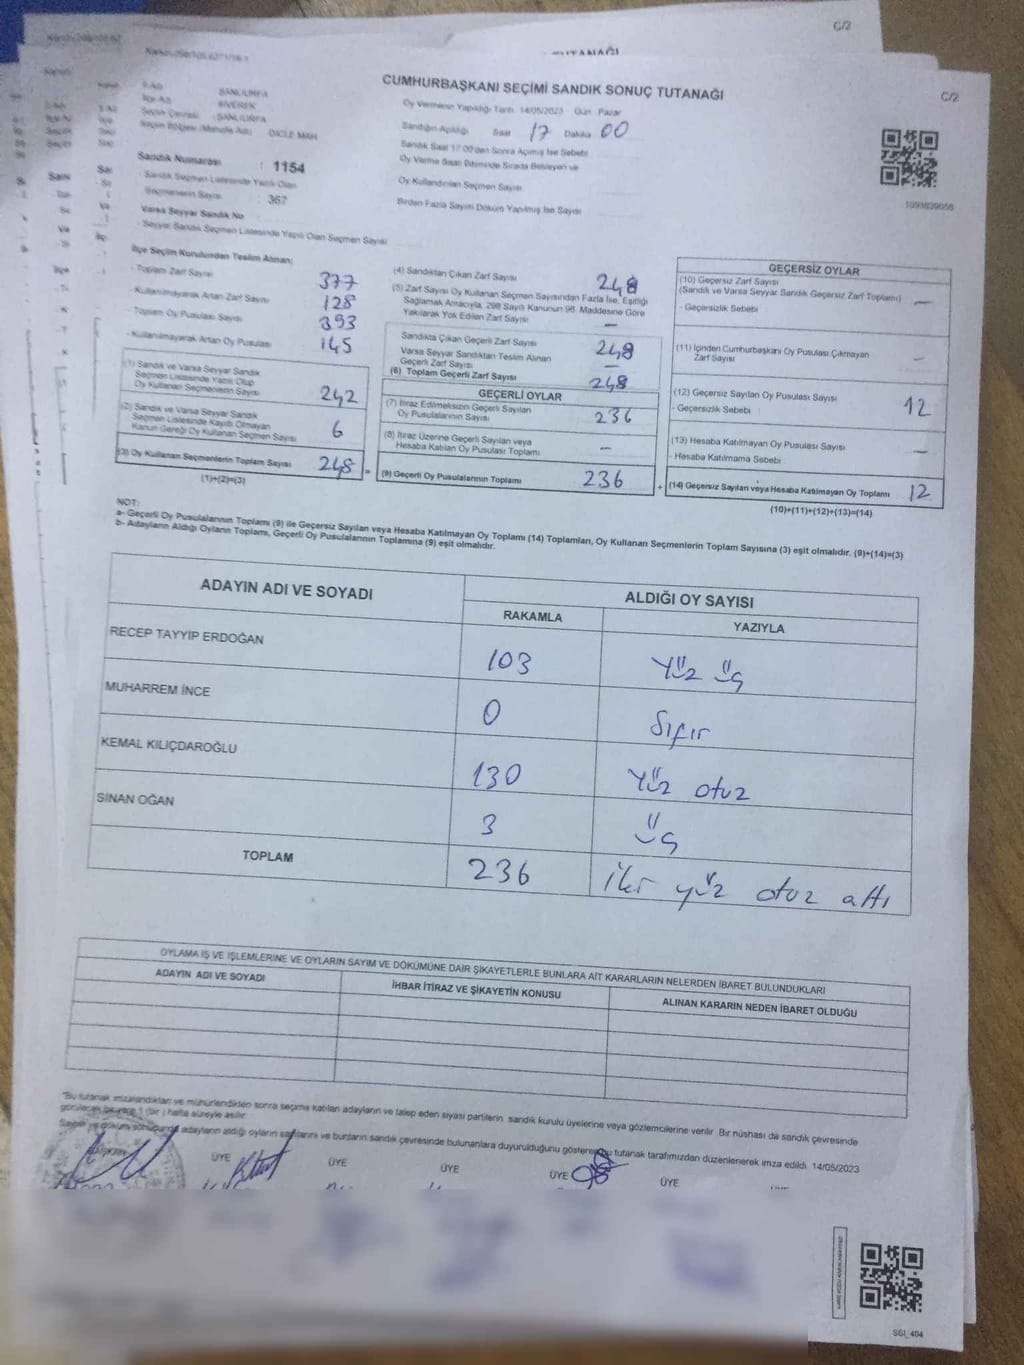 C/2
TUTANAĞI
C/2
CUMHURBAŞKANI SEÇİMİ SANDIK SONUÇ TUTANAĞI
İli Adı ŞANLIURFA
İlçe Adı SİVEREK
Seçim Çevresi ŞANLIURFA
Seçim Bölgesi (Mahalle Adı) DİCLE MAH.
Sandık Numarası : 1154
Sandık Seçmen Listesinde Yazılı Olan
Seçmenlerin Sayısı : 367
Varsa Seyyar Sandık No
- Seyyar Sandık Seçmen Listesinde Yazılı Olan Seçmen Sayısı
Oy Vermenin Yapıldığı Tarih 14/05/2023 Gün Pazar
Sandığın Açıldığı Saat 17 Dakika 00
Sandık Saat 17:00'den Sonra Açılmış İse Sebebi
Oy Verme Saati Bitiminde Sırada Bekleyen ve
Oy Kullandırılan Seçmen Sayısı
Birden Fazla Sayım Döküm Yapılmış İse Sayısı
1093839056
İlçe Seçim Kurulundan Teslim Alınan;
- Toplam Zarf Sayısı 377
- Kullanılmayarak Artan Zarf Sayısı 128
- Toplam Oy Pusulası Sayısı 393
- Kullanılmayarak Artan Oy Pusulası 145
(1) Sandık ve Varsa Seyyar Sandık
Seçmen Listesinde Yazılı Olup
Oy Kullanan Seçmenlerin Sayısı 242
(2) Sandık ve Varsa Seyyar Sandık
Seçmen Listesinde Kayıtlı Olmayan
Kanun Gereği Oy Kullanan Seçmen Sayısı 6
(3) Oy Kullanan Seçmenlerin Toplam Sayısı 248 =
(1)+(2)=(3)
(4) Sandıktan Çıkan Zarf Sayısı 248
(5) Zarf Sayısı Oy Kullanan Seçmen Sayısından Fazla İse, Eşitliği
Sağlamak Amacıyla, 298 Sayılı Kanunun 98. Maddesine Göre
Yakılarak Yok Edilen Zarf Sayısı —
Sandıkta Çıkan Geçerli Zarf Sayısı 248
Varsa Seyyar Sandıktan Teslim Alınan
Geçerli Zarf Sayısı —
(6) Toplam Geçerli Zarf Sayısı 248
GEÇERLİ OYLAR
(7) İtiraz Edilmeksizin Geçerli Sayılan
Oy Pusulalarının Sayısı 236
(8) İtiraz Üzerine Geçerli Sayılan veya
Hesaba Katılan Oy Pusulası Toplamı —
(9) Geçerli Oy Pusulalarının Toplamı 236 +
GEÇERSİZ OYLAR
(10) Geçersiz Zarf Sayısı
(Sandık ve Varsa Seyyar Sandık Geçersiz Zarf Toplamı) —
- Geçersizlik Sebebi
(11) İçinden Cumhurbaşkanı Oy Pusulası Çıkmayan
Zarf Sayısı —
(12) Geçersiz Sayılan Oy Pusulası Sayısı 12
- Geçersizlik Sebebi
(13) Hesaba Katılmayan Oy Pusulası Sayısı —
- Hesaba Katılmama Sebebi
(14) Geçersiz Sayılan veya Hesaba Katılmayan Oy Toplamı 12
(10)+(11)+(12)+(13)=(14)
NOT:
a- Geçerli Oy Pusulalarının Toplamı (9) ile Geçersiz Sayılan veya Hesaba Katılmayan Oy Toplamı (14) Toplamları, Oy Kullanan Seçmenlerin Toplam Sayısına (3) eşit olmalıdır. (9)+(14)=(3)
b- Adayların Aldığı Oyların Toplamı, Geçerli Oy Pusulalarının Toplamına (9) eşit olmalıdır.
ADAYIN ADI VE SOYADI ALDIĞI OY SAYISI
RAKAMLA YAZIYLA
RECEP TAYYİP ERDOĞAN 103 Yüz üç
MUHARREM İNCE 0 Sıfır
KEMAL KILIÇDAROĞLU 130 Yüz otuz
SİNAN OĞAN 3 üç
TOPLAM 236 iki yüz otuz altı
OYLAMA İŞ VE İŞLEMLERİNE VE OYLARIN SAYIM VE DÖKÜMÜNE DAİR ŞİKAYETLERLE BUNLARA AİT KARARLARIN NELERDEN İBARET BULUNDUKLARI
ADAYIN ADI VE SOYADI İHBAR İTİRAZ VE ŞİKAYETİN KONUSU ALINAN KARARIN NEDEN İBARET OLDUĞU
"Bu tutanak imzalandıktan ve mühürlendikten sonra seçime katılan adayların ve talep eden siyasi partilerin sandık kurulu üyelerine veya gözlemcilerine verilir. Bir nüshası da sandık çevresinde
görülecek bir yere 1 (bir) hafta süreyle asılır.
Sayım ve döküm sonucunda adayların aldığı oyların sayılarını ve bunların sandık çevresinde bulunanlara duyurulduğunu gösterir bu tutanak tarafımızdan düzenlenerek imza edildi. 14/05/2023
ÜYE ÜYE ÜYE ÜYE ÜYE
SGI_404